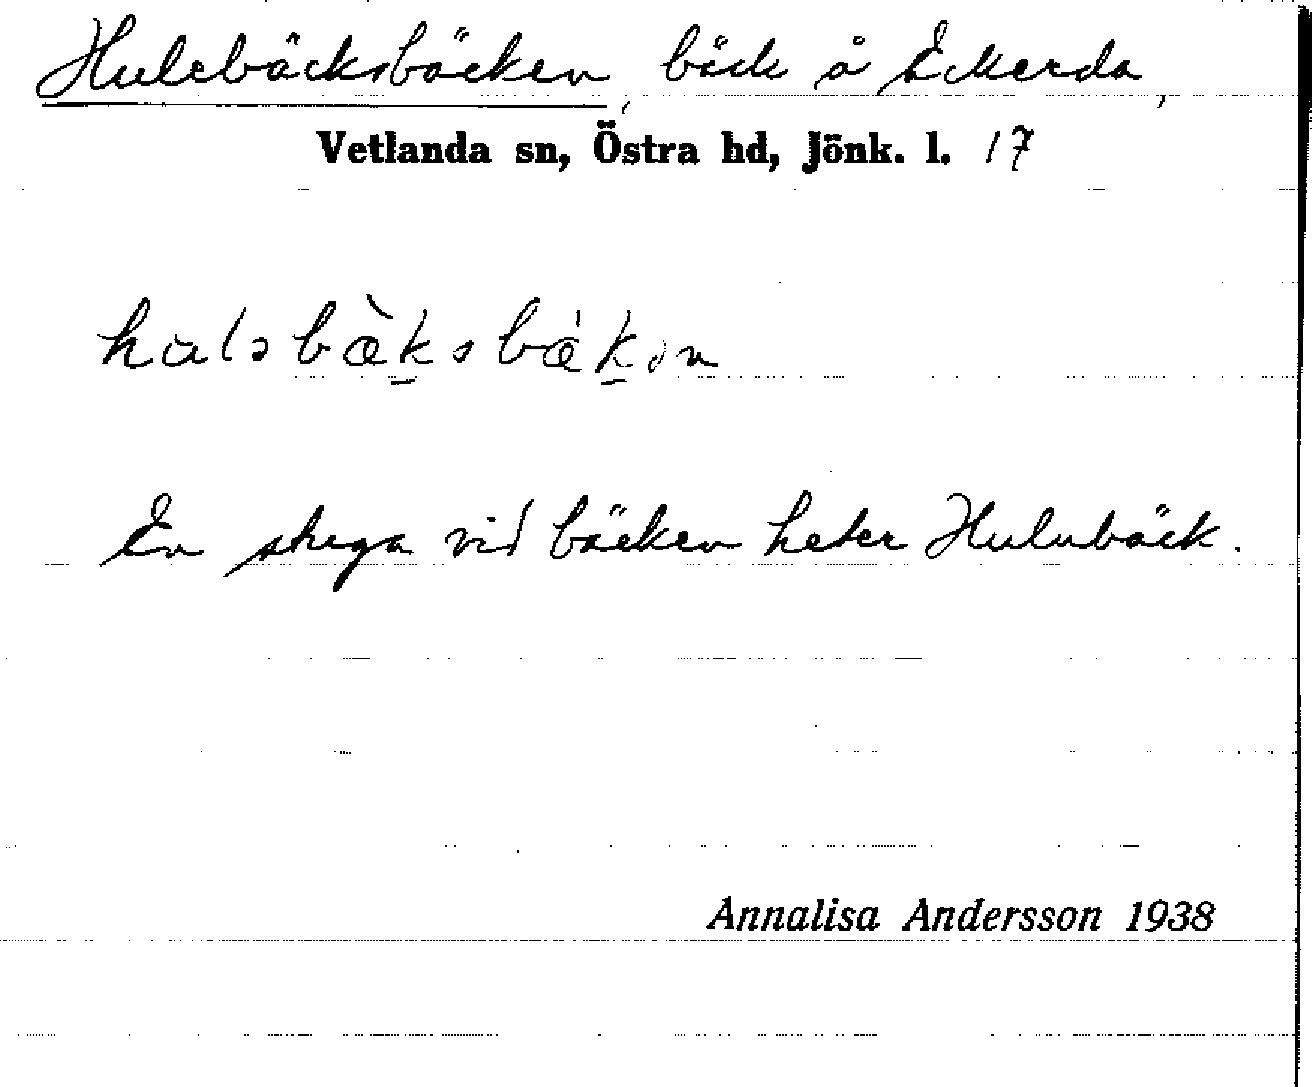 Hulebäcksbäcken, bäck å Eckerda,
Vetlanda sn, Östra hd, Jönk. l. 17
huləbæ̀ksbækən
En stuga vid bäcken heter Hulubäck.
Annalisa Andersson 1938